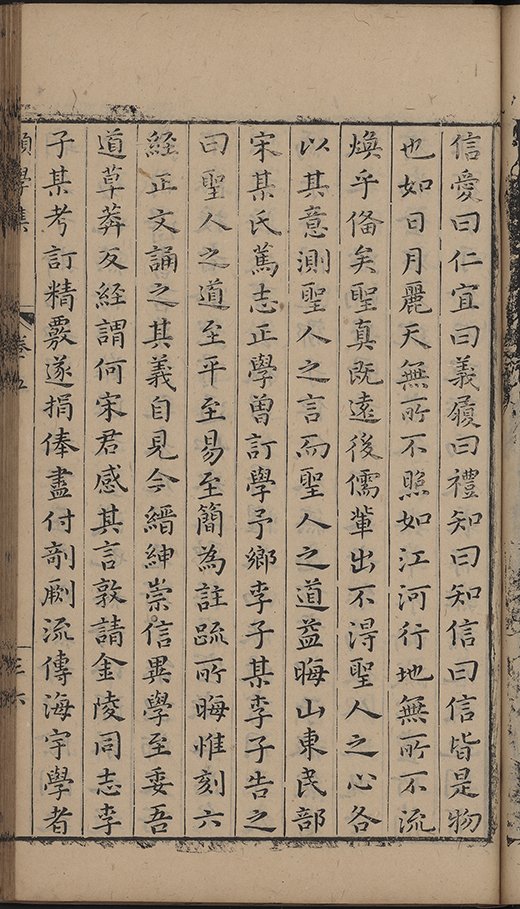 信愛曰仁宜曰義履曰禮知曰知信曰信皆是物
也如日月麗天無所不照如江河行地無所不流
煥乎俻矣聖真既遠後儒輩出不得聖人之心各
以其意測聖人之言而聖人之道益晦山東民部
宋某氏篤志正學曾訂學予鄉李子某李子告之
曰聖人之道至平至易至簡為註䟽所晦惟刻六
經正文誦之其義自見今縉紳崇信異學至委吾
道草莽反經謂何宋君感其言敦請金陵同志李
子某考訂精覈遂捐俸盡付剞劂流傳海宇學者
學集
卷五
三六